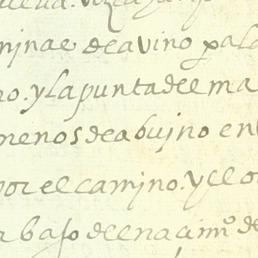 minae de avino p al
no. y la punta de e ma
menos de abujno en
por el camino. y el o
abajo de el nacim.º de